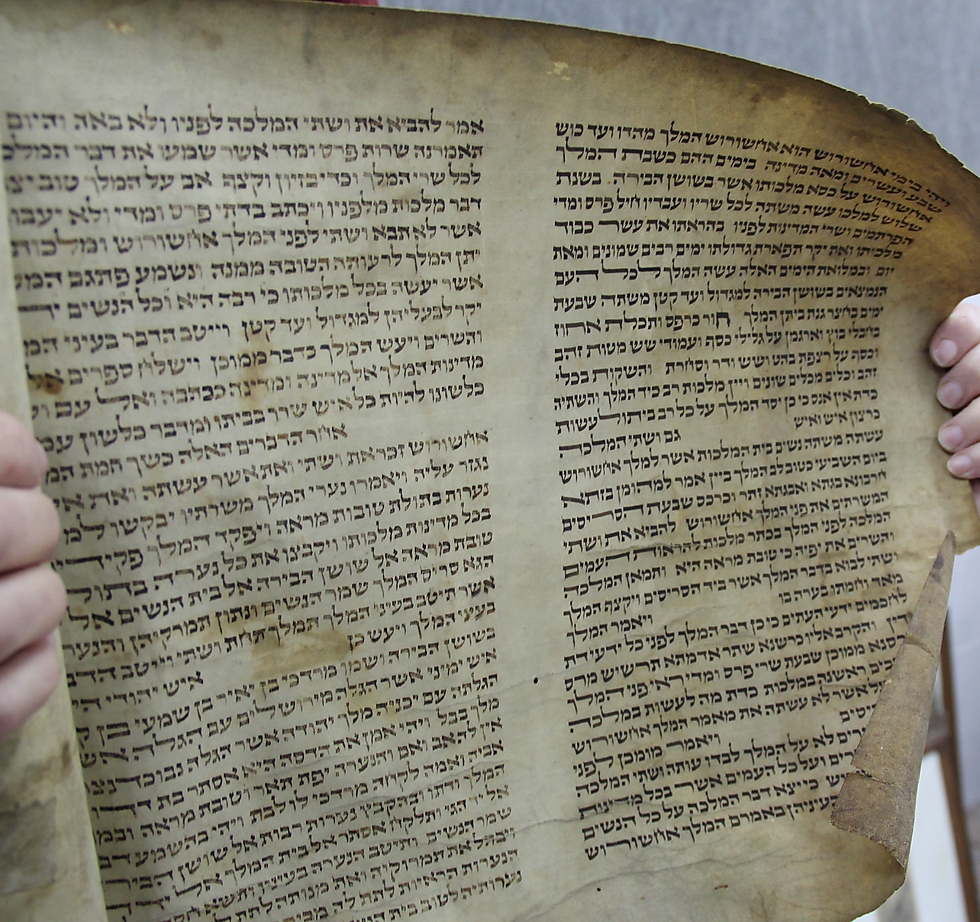 ויהי בימי אחשורוש הוא אחשורוש המלך מהדו ועד כוש
שבע ועשרים ומאה מדינה בימים ההם כשבת המלך
אחשורוש על כסא מלכותו אשר בשושן הבירה בשנת
שלוש למלכו עשה משתה לכל שריו ועבדיו חיל פרס ומדי
הפרתמים ושרי המדינות לפניו בהראתו את עשר כבוד
מלכותו ואת יקר תפארת גדולתו ימים רבים שמונים ומאת
יום ובמלואת הימים האלה עשה המלך לכל העם
הנמצאים בשושן הבירה למגדול ועד קטן משתה שבעת
ימים בחצר גנת ביתן המלך חור כרפס ותכלת אחוז
בחבלי בוץ וארגמן על גלילי כסף ועמודי שש מטות זהב
וכסף על רצפת בהט ושש ודר וסחרת והשקות בכלי
זהב וכלים מכלים שונים ויין מלכות רב כיד המלך והשתיה
כדת אין אנס כי כן יסד המלך על כל רב ביתו לעשות
כרצון איש ואיש גם ושתי המלכה
עשתה משתה נשים בית המלכות אשר למלך אחשורוש
ביום השביעי כטוב לב המלך ביין אמר למהומן בזתא
חרבונא בגתא ואבגתא זתר וכרכס שבעת הסריסים
המשרתים את פני המלך אחשורוש להביא את ושתי
המלכה לפני המלך בכתר מלכות להראות העמים
והשרים את יפיה כי טובת מראה היא ותמאן המלכה
ושתי לבוא בדבר המלך אשר ביד הסריסים ויקצף המלך
מאד וחמתו בערה בו ויאמר המלך
לחכמים ידעי העתים כי כן דבר המלך לפני כל ידעי דת
ודין והקרב אליו כרשנא שתר אדמתא תרשיש מרס
ממוכן שבעת שרי פרס ומדי ראי פני המלך
ראשנה במלכות כדת מה לעשות במלכה
אשר לא עשתה את מאמר המלך אחשורוש
ויאמר מומכן לפני
לא על המלך לבדו עותה ושתי המלכה
ועל כל העמים אשר בכל מדינות
כי יצא דבר המלכה על כל הנשים
בעיניהן באמרם המלך אחשורוש
אמר להביא את ושתי המלכה לפניו ולא באה והיום
תאמרנה שרות פרס ומדי אשר שמעו את דבר המלכה
לכל שרי המלך וכדי בזיון וקצף אם על המלך טוב
דבר מלכות מלפניו ויכתב בדתי פרס ומדי ולא
אשר לא תבוא ושתי לפני המלך אחשורוש ומלכות
יתן המלך לרעותה הטובה ממנה ונשמע פתגם
אשר יעשה בכל מלכותו כי רבה היא וכל הנשים
יקר לבעליהן למגדול ועד קטן וייטב הדבר בעיני
והשרים ויעש המלך כדבר ממוכן וישלח ספרים אל
מדינות המלך אל מדינה ומדינה ככתבה ואל עם
כלשונו להיות כל איש שרר בביתו ומדבר כלשון
אחר הדברים האלה כשך חמת
אחשורוש זכר את ושתי ואת אשר עשתה ואת
נגזר עליה ויאמרו נערי המלך משרתיו יבקשו
נערות בתולת טובות מראה ויפקד המלך
בכל מדינות מלכותו ויקבצו את כל נערה בתולה
טובת מראה אל שושן הבירה אל בית הנשים אל
הגא סריס המלך שמר הנשים ונתון תמרקיהן
אשר תיטב בעיני המלך תמלך תחת ושתי וייטב
בעיני המלך ויעש כן איש יהודי
בשושן הבירה ושמו מרדכי בן יאיר בן שמעי בן
איש ימיני אשר הגלה מירושלים עם הגלה
הגלתה עם יכניה מלך יהודה אשר הגלה
מלך בבל ויהי אמן את הדסה היא אסתר בת
אין לה אב ואם והנערה יפת תאר וטובת מראה
אביה ואמה לקחה מרדכי לו לבת ויהי בהשמע
המלך ודתו ובהקבץ נערות רבות אל שושן
אל יד הגי ותלקח אסתר אל בית המלך אל
שמר הנשים ותיטב הנערה בעיניו
ויבהל את תמרוקיה ואת מנותה
הנערות הראיות לתת לה מבית
נערותיה לטוב בית